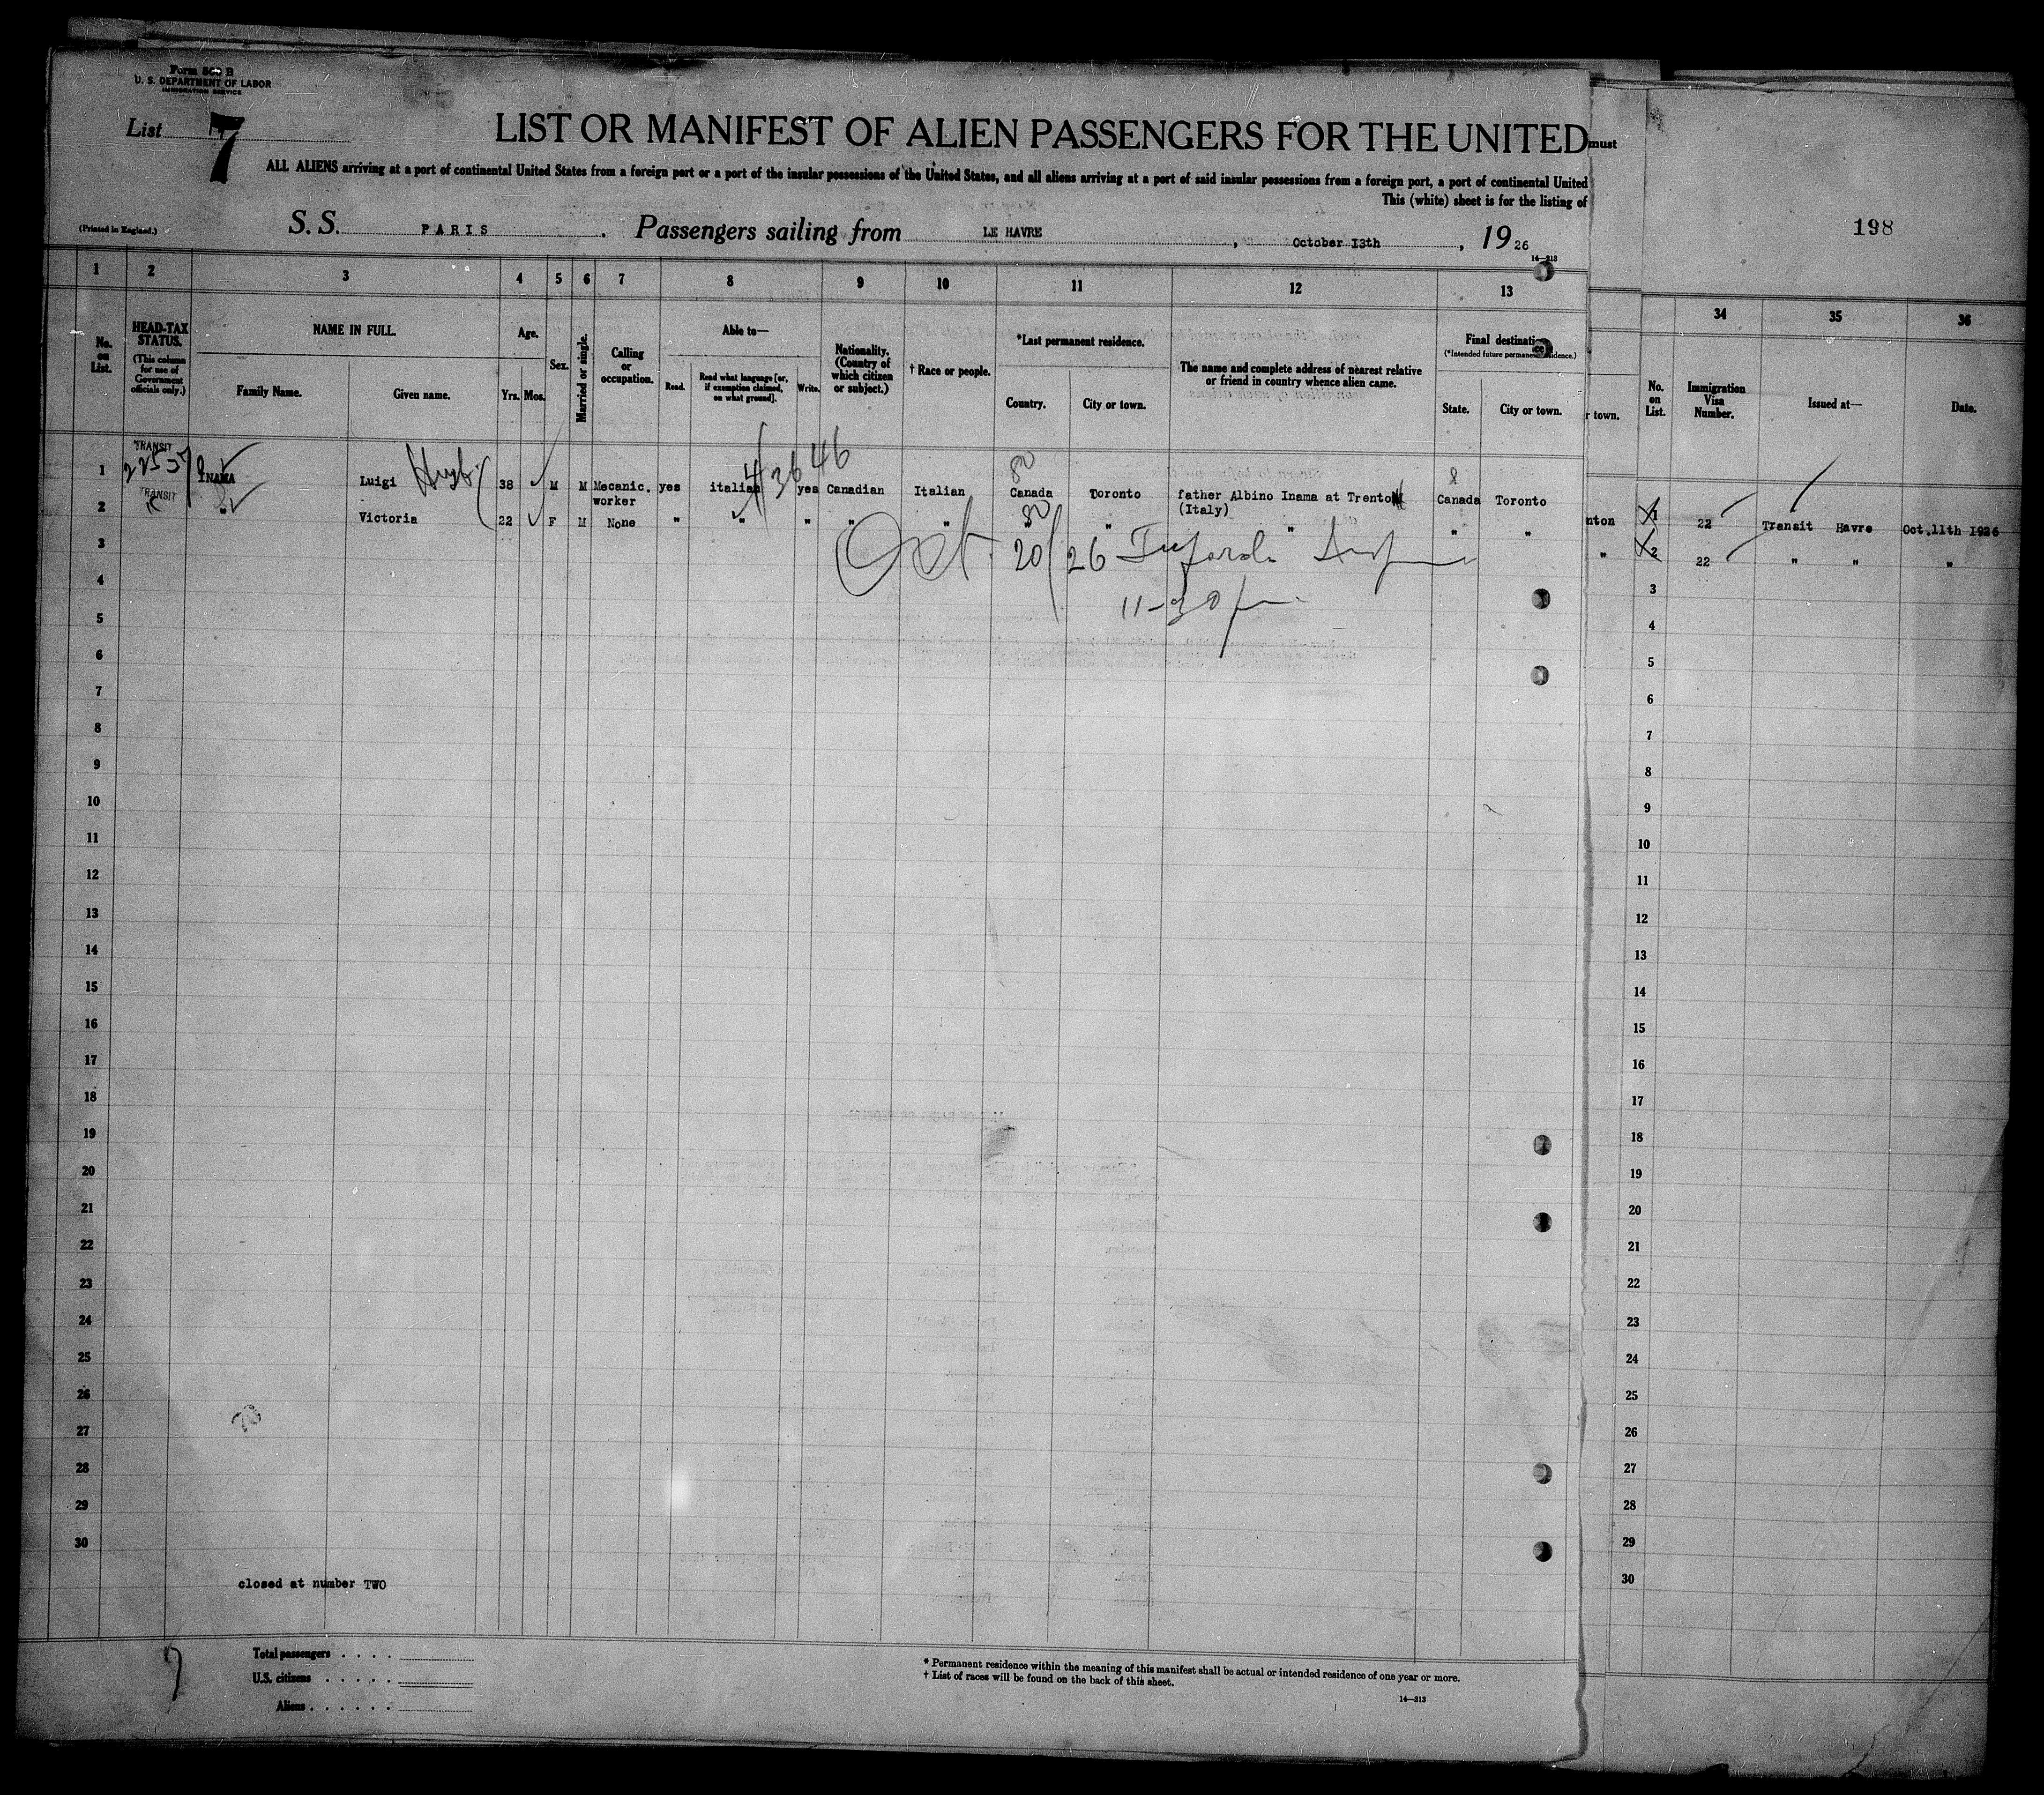 Form 500 B
U. S. DEPARTMENT OF LABOR
IMMIGRATION SERVICE
List 7
LIST OR MANIFEST OF ALIEN PASSENGERS FOR THE UNITED
must
ALL ALIENS arriving at a port of continental United States from a foreign port or a port of the insular possessions of the United States, and all aliens arriving at a port of said insular possessions from a foreign port, a port of continental United
This (white) sheet is for the listing of
198
(Printed in England.)
S. S. PARIS. Passengers sailing from LE HAVRE, October 13th, 1926
14—213
1 2 3 4 5 6 7 8 9 10 11 12 13
34 35 36
No. on List.
HEAD-TAX STATUS.
(This column for use of Government officials only.)
NAME IN FULL.
Family Name. Given name.
Age.
Yrs. Mos.
Sex.
Married or single.
Calling or occupation.
Able to—
Read. Read what language [or, if exemption claimed, on what ground]. Write.
Nationality. (Country of which citizen or subject.)
† Race or people.
*Last permanent residence.
Country. City or town.
The name and complete address of nearest relative or friend in country whence alien came.
Final destination
(*Intended future permanent residence.)
State. City or town.
r town.
No. on List.
Immigration Visa Number.
Issued at—
Date.
TRANSIT
1 INAMA Luigi 38 M M Mecanic. worker yes italian yes Canadian Italian Canada Toronto father Albino Inama at Trento (Italy) Canada Toronto
4 36 46
80
8
TRANSIT
2 " Victoria 22 F M None " " " " " " " " " "
80
nton 1 22 Transit Havre Oct.11th 1926
" 2 22 " " "
Oct 20/26
11-30 pm
3
4
5
6
7
8
9
10
11
12
13
14
15
16
17
18
19
20
21
22
23
24
25
26
27
28
29
30
3
4
5
6
7
8
9
10
11
12
13
14
15
16
17
18
19
20
21
22
23
24
25
26
27
28
29
30
closed at number TWO
Total passengers . . . .
U.S. citizens . . . . .
Aliens . . . . . .
* Permanent residence within the meaning of this manifest shall be actual or intended residence of one year or more.
† List of races will be found on the back of this sheet.
14—213